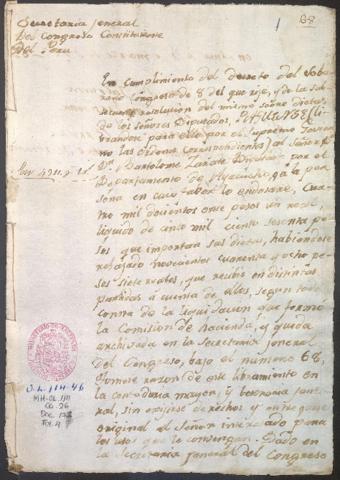 Secretaria General
del Congreso Constituyente
del Peru
1
68
En cumplimiento del decreto del Sobe
rano Congreso de 8 del que rije, y de la sub
resolucion del mismo sobre dietas
de los señores Diputados, PAGUESE (li
brandose para ello por el Supremo Gobier
no las ordenes correspondientes) al Señor
D. Bartolome Zarate Diputado por el
Departamento de ó a la per
sona en cuyo fabor lo endosare, Cua
tro mil docientos once pesos un real
liquido de cinco mil ciento sesenta pe
sos que importan sus dietas, habiendose
rebajado novecientos cuarenta y ocho pe
sos siete reales, que recibió en distintas
partidas á cuenta de ellas, segun todo
consta de la liquidacion que formó
la Comision de hacienda, y queda
archivada en la Secretaria General
del Congreso, bajo el numero 68.
Tomese razon de este libramiento en
la contaduria mayor, y tesoreria gene
ral, sin exijirse derechos y entreguese
original al Señor interesado para
los usos que le convengan. Dado en
la Secretaria General del Congreso
Son 4211 p 1 r
O.L. 114-46
MH-OL 114
Ca. 26
Doc.
Fol. 4